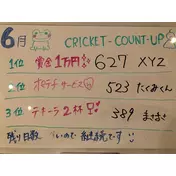 6月 CRICKET-COUNT-UP
1位 賞金1万円!! 627 XYZ
2位 ポテチサービス 523 たくみくん
3位 テキーラ2杯!! 389 まさまさ
残り日数 ないので継続です